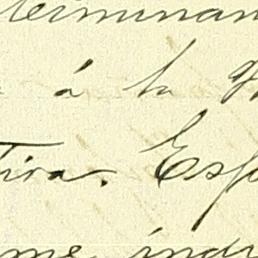 terminan
á la
tiva. Esp
me indi